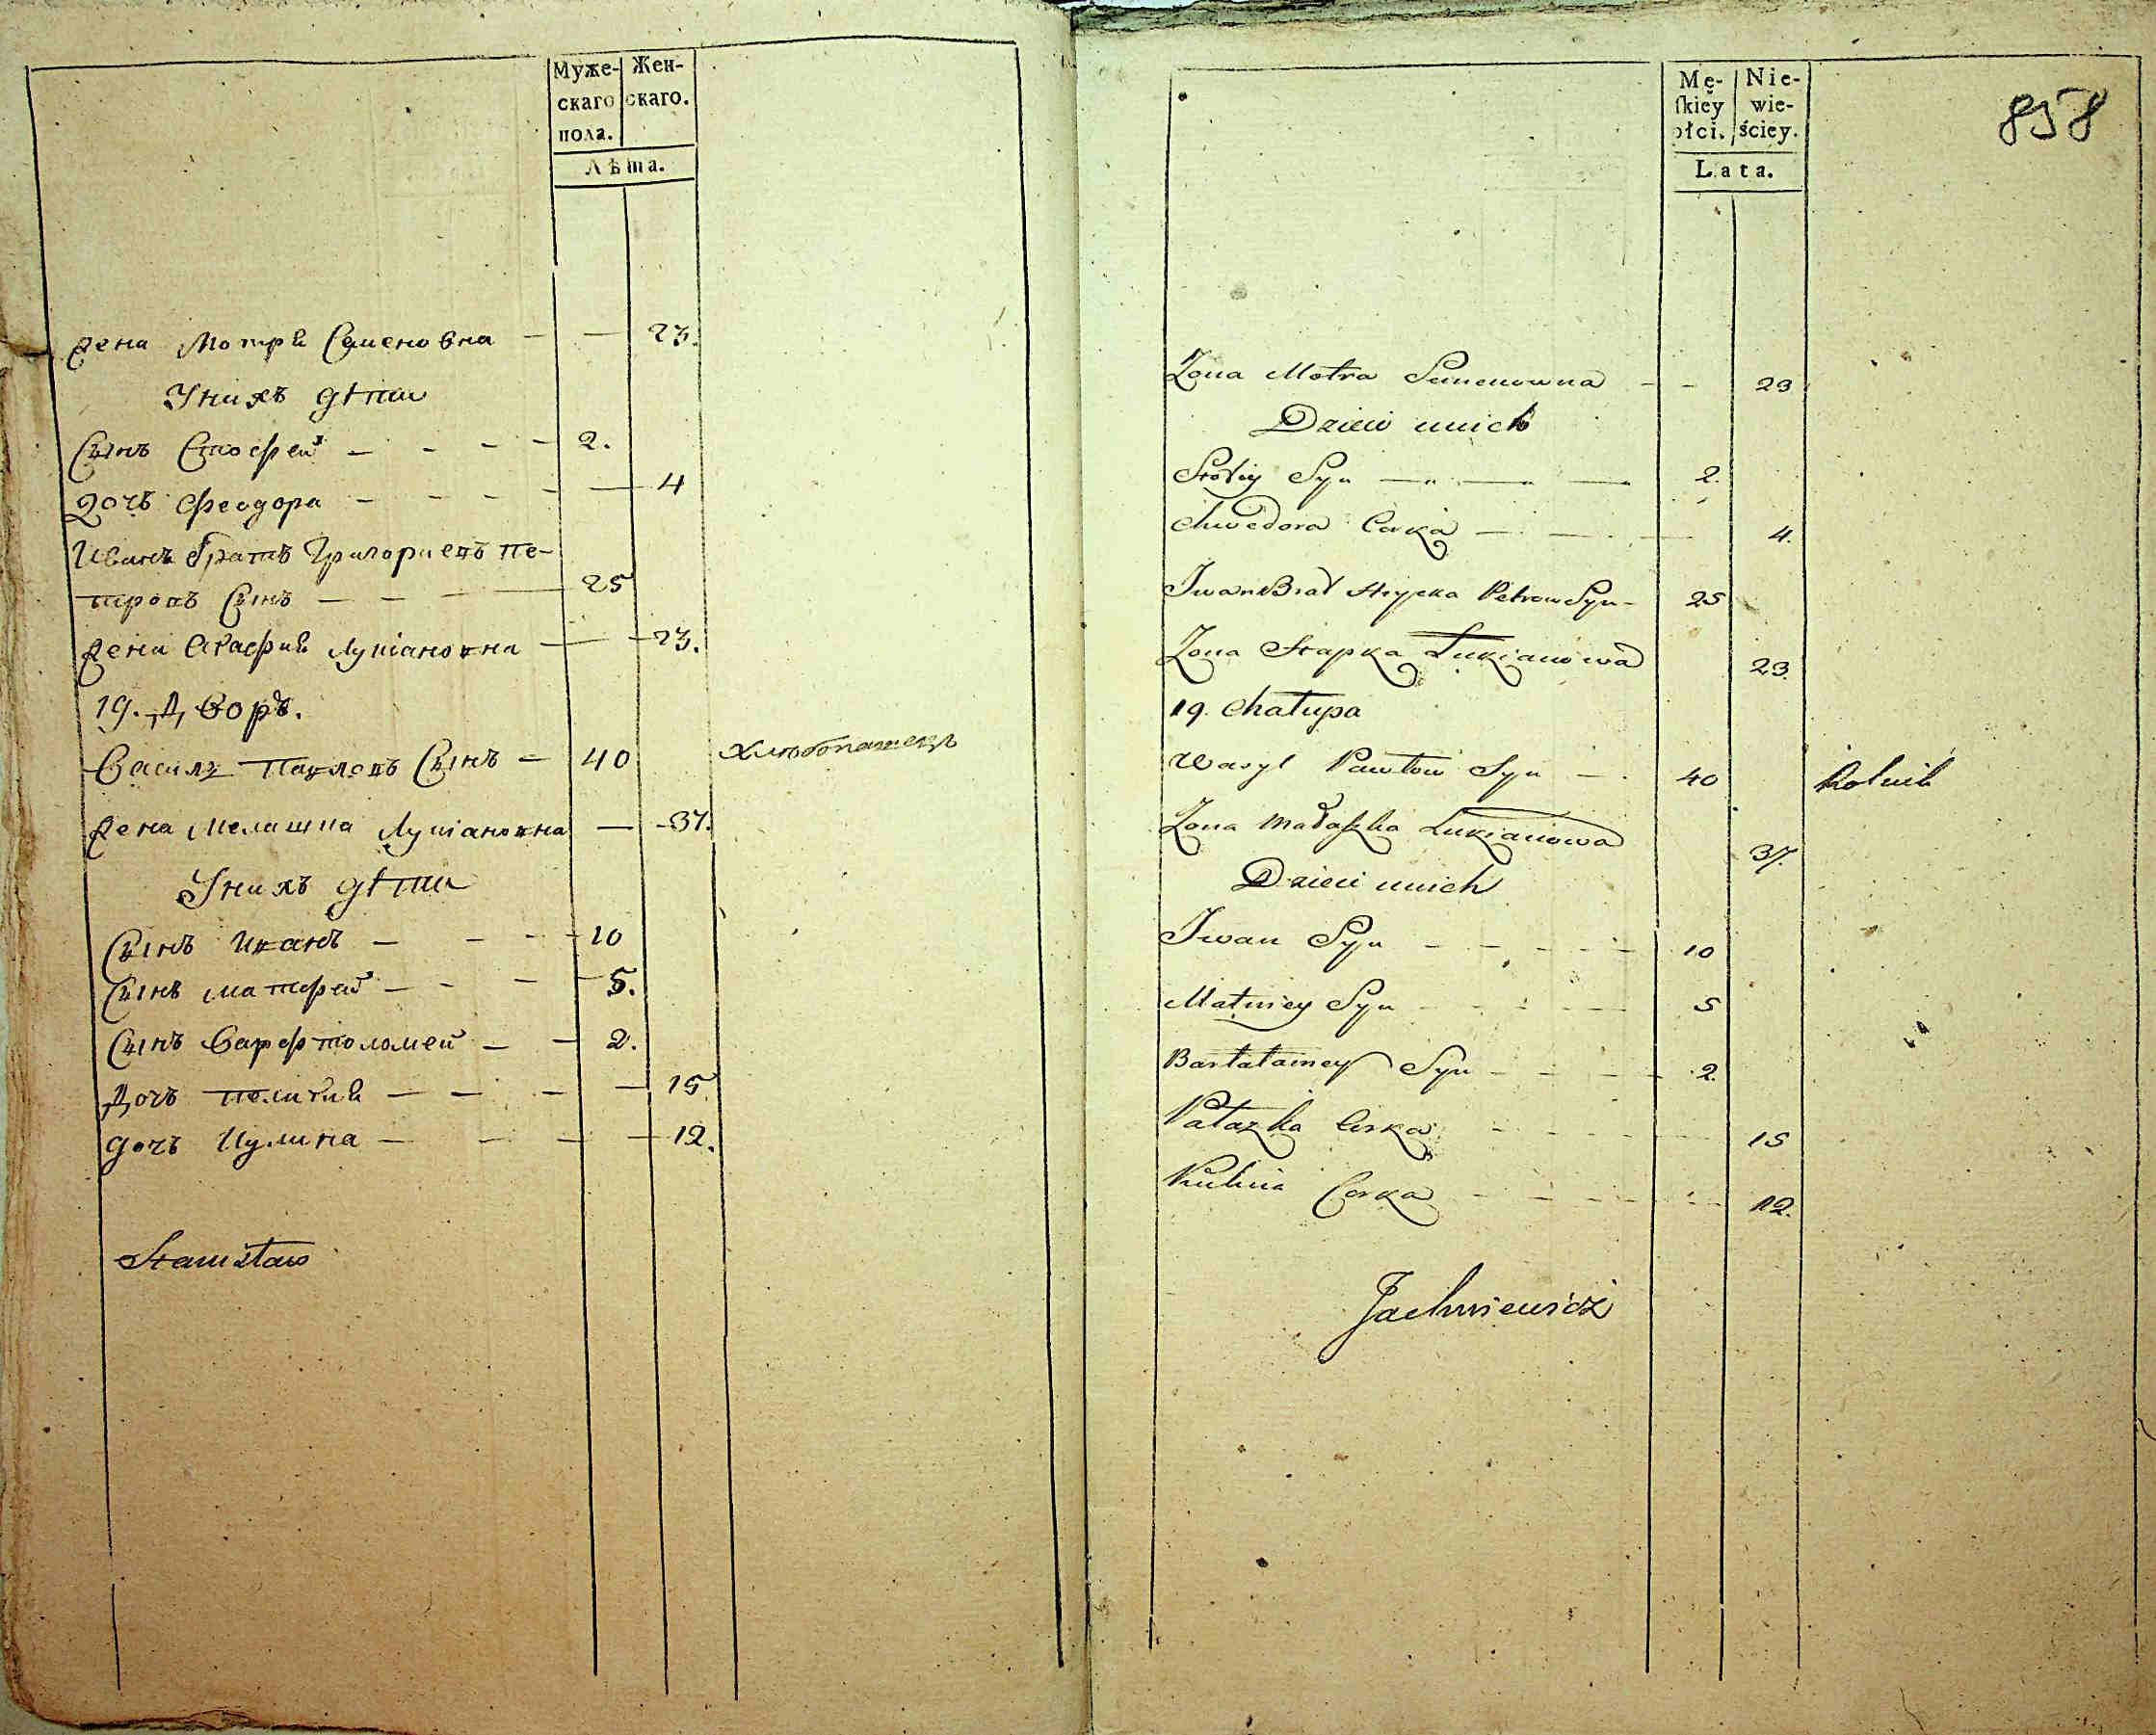 Муже-
скаго
пола.
Жен-
скаго.
Лѣта.
жена Мотря Семеновна — — 23.
У нихъ дѣти
Сынъ Стофей — — — 2.
дочъ Феодора — — — — 4
Иванъ братъ Григориевъ Пе-
тровъ Сынъ — — — 25
жена Агафия Лукiановна — — 23.
19. Дворъ.
Василь Павловъ Сынъ — 40 хлѣбопашецъ
жена Мелашка Лукiановна — 37.
У нихъ дѣти
Сынъ Иванъ — — — 10
Сынъ Матфей — — — 5.
Сынъ Варфтоломей — — 2.
Дочъ Пелагия — — — — 15
дочъ Кулина — — — — 12.
Stanisław
Mę-
ſkiey
płci.
Nie-
wie-
ściey.
Lata.
858
Zona Motra Semenowna — — 23
Dzieci unich
Syn — — — 2.
Chwedora Corka — — — 4.
Iwan Brat Hrycka Petrow Syn — 25
Zona Hapka Łukianowa 23.
19. Chałupa
Wasyl Pawłow Syn — 40 Rolnik
Zona Małaszka Łukianowa 37.
Dzieci unich
Iwan Syn — — — — 10
Matwiey Syn — — — 5
Bartałamey Syn — — — 2.
Pałazka Corka — — — 15
Kulina Corka — — — 12.
Jachniewicz